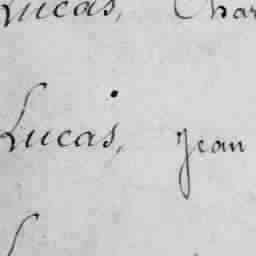 Lucas, Char
Lucas, Jean